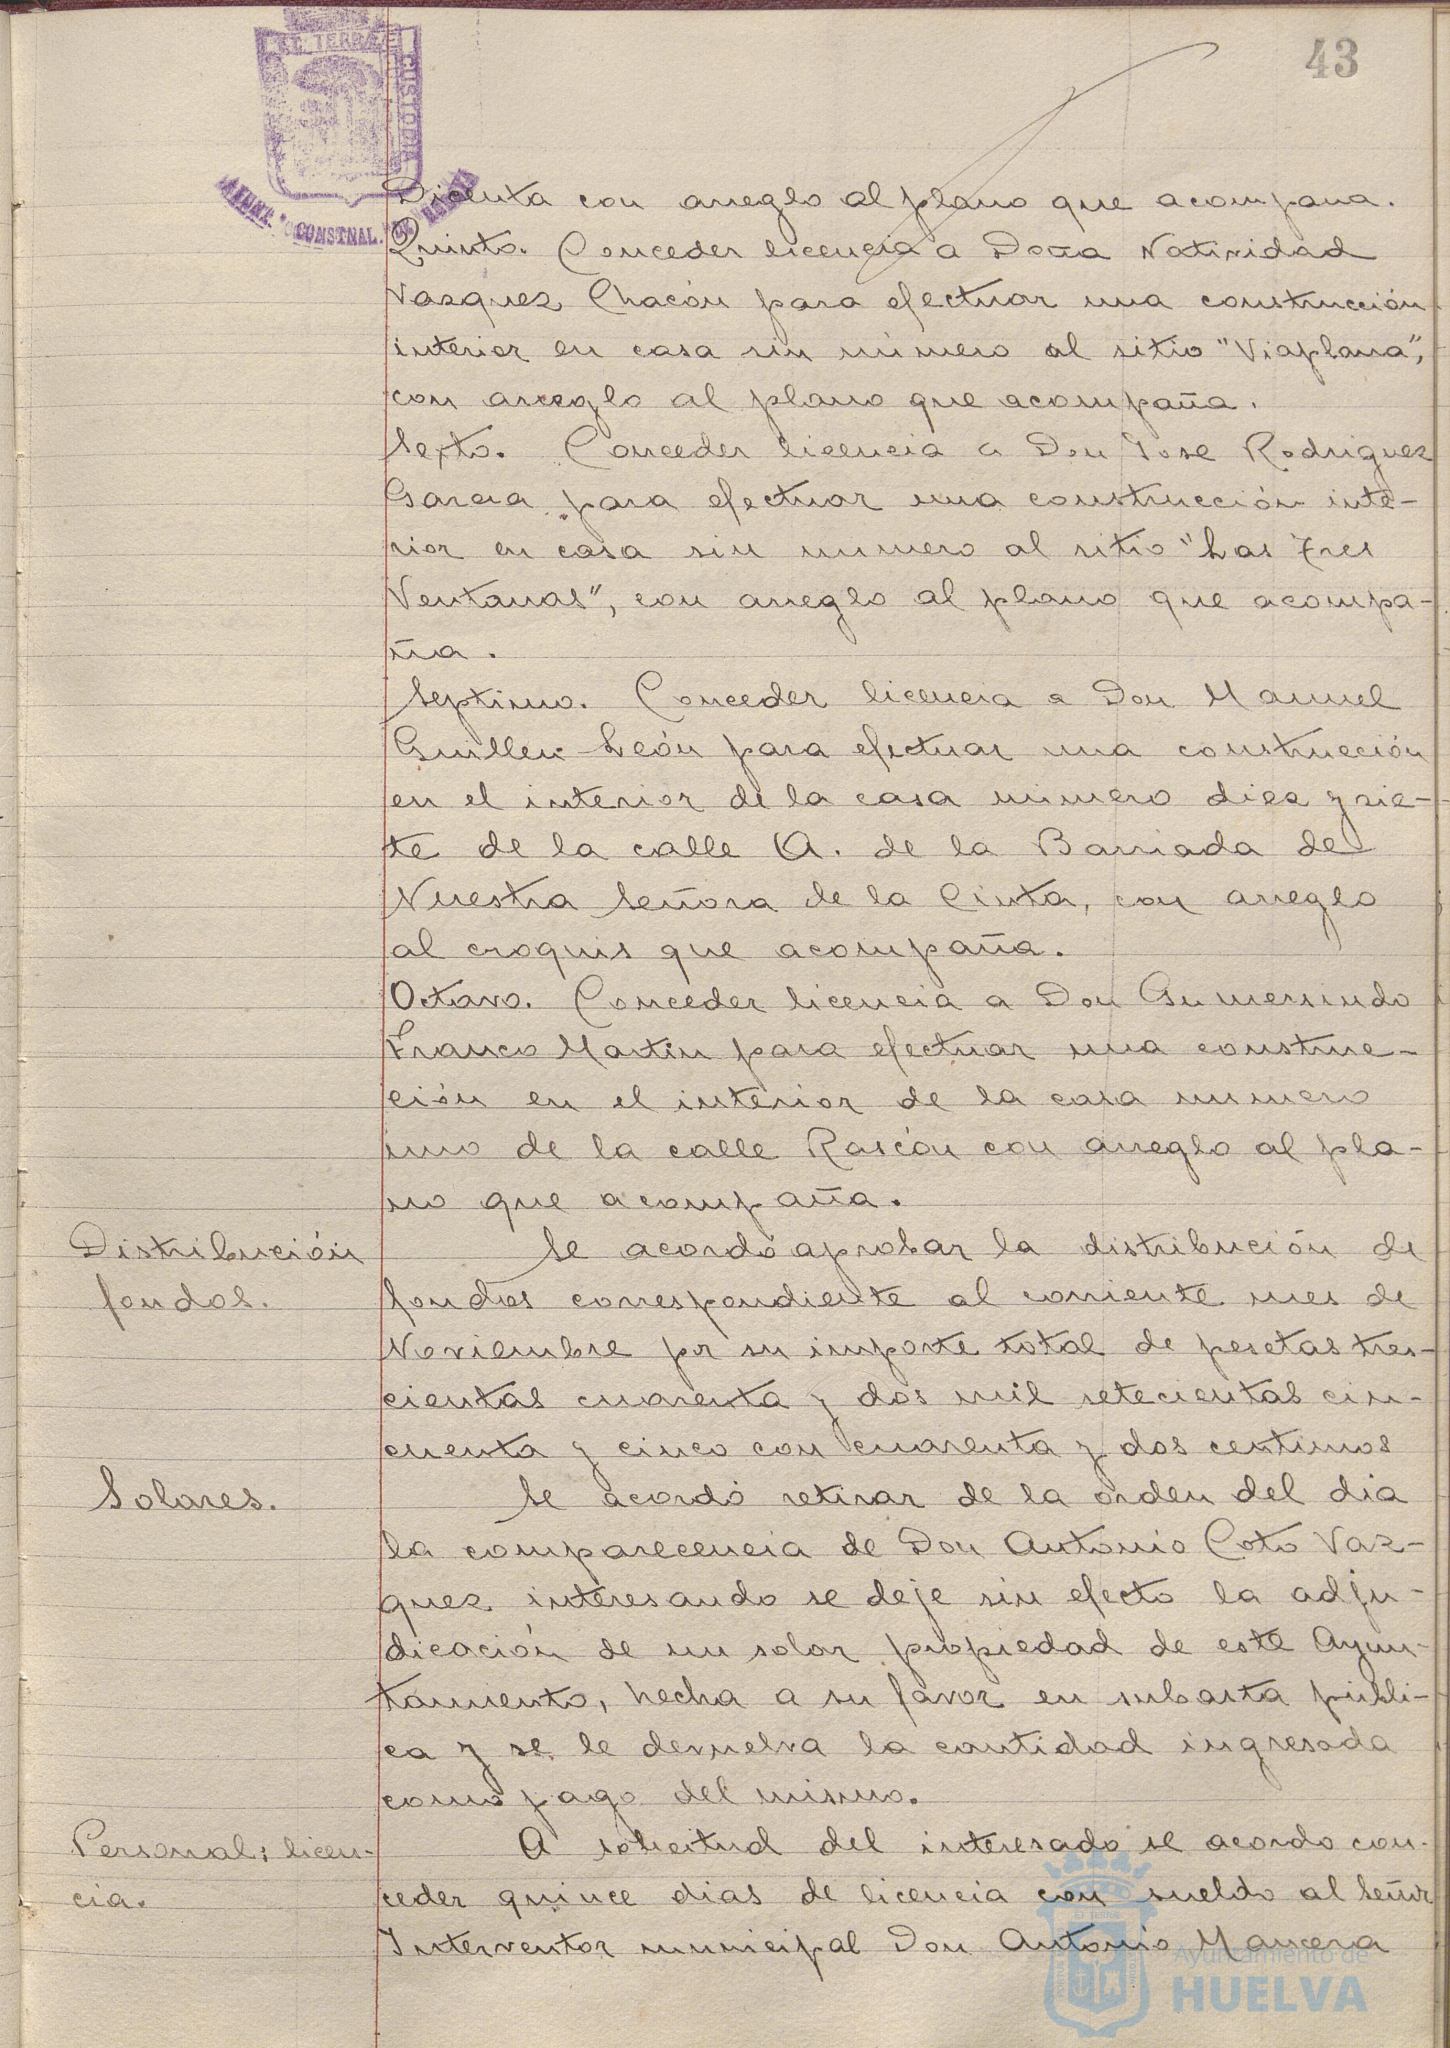 43
ET TERRÆ CUSTODIA
CONSTNAL. DE HUELVA
Dicenta con arreglo al plano que acompana.
Quinto. Conceder licencia a Doña Natividad
Vazquez Chacón para efectuar una construcción
interior en casa sin número al sitio "Viaplana",
con arreglo al plano que acompaña.
Sexto. Conceder licencia a Don Jose Rodriguez
Garcia para efectuar una construcción inte-
rior en casa sin numero al sitio "Las Tres
Ventanas", con arreglo al plano que acompa-
ña.
Septimo. Conceder licencia a Don Manuel
Guillen León para efectuar una construcción
en el interior de la casa numero diez y sie-
te de la calle A. de la Barriada de
Nuestra Señora de la Cinta, con arreglo
al croquis que acompaña.
Octavo. Conceder licencia a Don Gumersindo
Franco Martin para efectuar una construc-
ción en el interior de la casa numero
uno de la calle Rascón con arreglo al pla-
no que acompaña.
Distribución
fondos.
Se acordó aprobar la distribución de
fondos correspondiente al corriente mes de
Noviembre por su importe total de pesetas tres-
cientas cuarenta y dos mil setecientas cin-
cuenta y cinco con cuarenta y dos centimos
Solares.
Se acordó retirar de la orden del dia
la comparecencia de Don Antonio Coto Vaz-
quez interesando se deje sin efecto la adju-
dicación de un solar propiedad de este Ayun-
tamiento, hecha a su favor en subasta públi-
ca y se le devuelva la cantidad ingresada
como pago del mismo.
Personal: licen-
cia.
A solicitud del interesado se acordo con-
ceder quince dias de licencia con sueldo al Señor
Interventor municipal Don Antonio Mancera
Ayuntamiento de
HUELVA